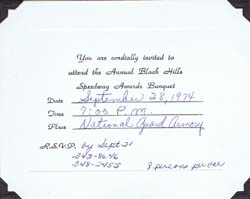 You are cordially invited to
attend the Annual Black Hills
Speedway Awards Banquet
Date September 28, 1974
Time 7:00 P.M.
Place National Guard Armory
R.S.V.P. by Sept 21
343-8646
348-2455 8 persons per car